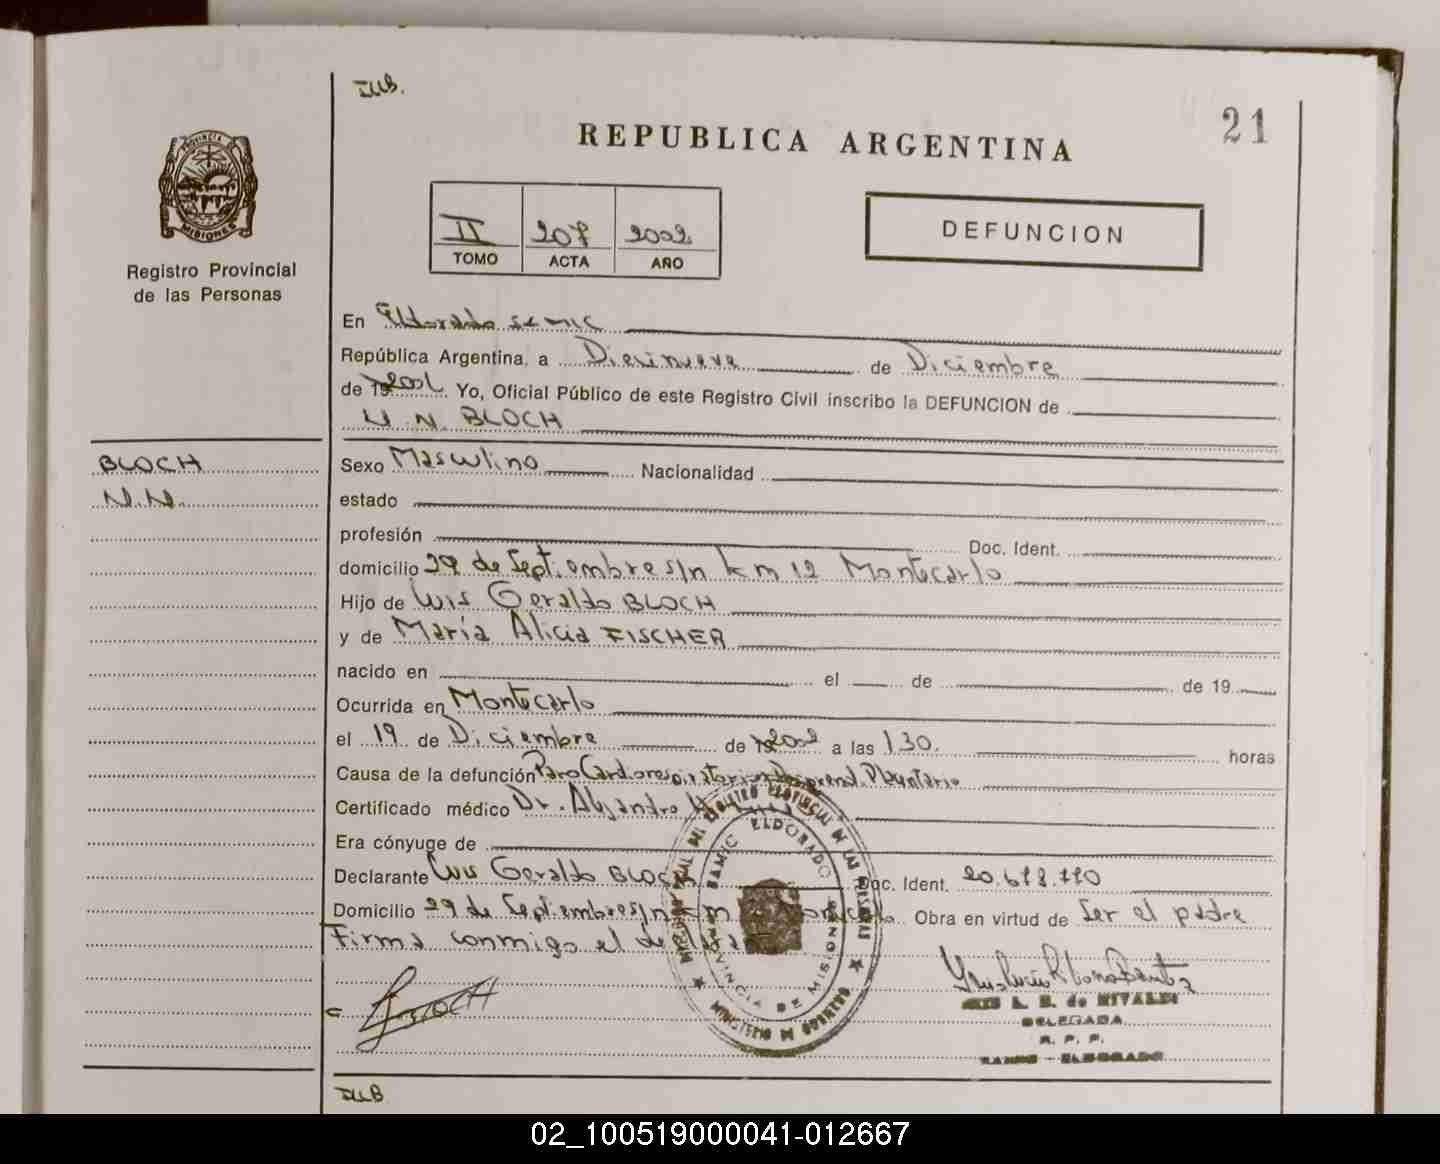 ILLB.
21
REPUBLICA ARGENTINA
PROVINCIA DE
MISIONES
Registro Provincial
de las Personas
II 207 2002
TOMO ACTA AÑO
DEFUNCION
En Eldorado
República Argentina, a Diecinueve de Diciembre
de 19 2002 Yo, Oficial Público de este Registro Civil inscribo la DEFUNCION de
N.N. BLOCH
BLOCH
N.N.
Sexo Masculino Nacionalidad
estado
profesión Doc. Ident.
domicilio 29 de Septiembre s/n km 12 Montecarlo
Hijo de Luis Geraldo BLOCH
y de María Alicia FISCHER
nacido en el de de 19
Ocurrida en Montecarlo
el 19 de Diciembre de 2002 a las 1 30. horas
Causa de la defunción Paro Cardiorespiratorio
Certificado médico Dr. Alejandro
Era cónyuge de
Declarante Luis Geraldo BLOCH Doc. Ident. 20.678.770
Domicilio 29 de Septiembre s/n km Obra en virtud de Ser el padre
Firma conmigo el
ELDORADO
PROVINCIA DE MISIONES
MINISTERIO DE GOBIERNO
BLOCH
L. B. de RIVALDI
DELEGADA
R. P. P.
ELDORADO
ILLB
02_100519000041-012667